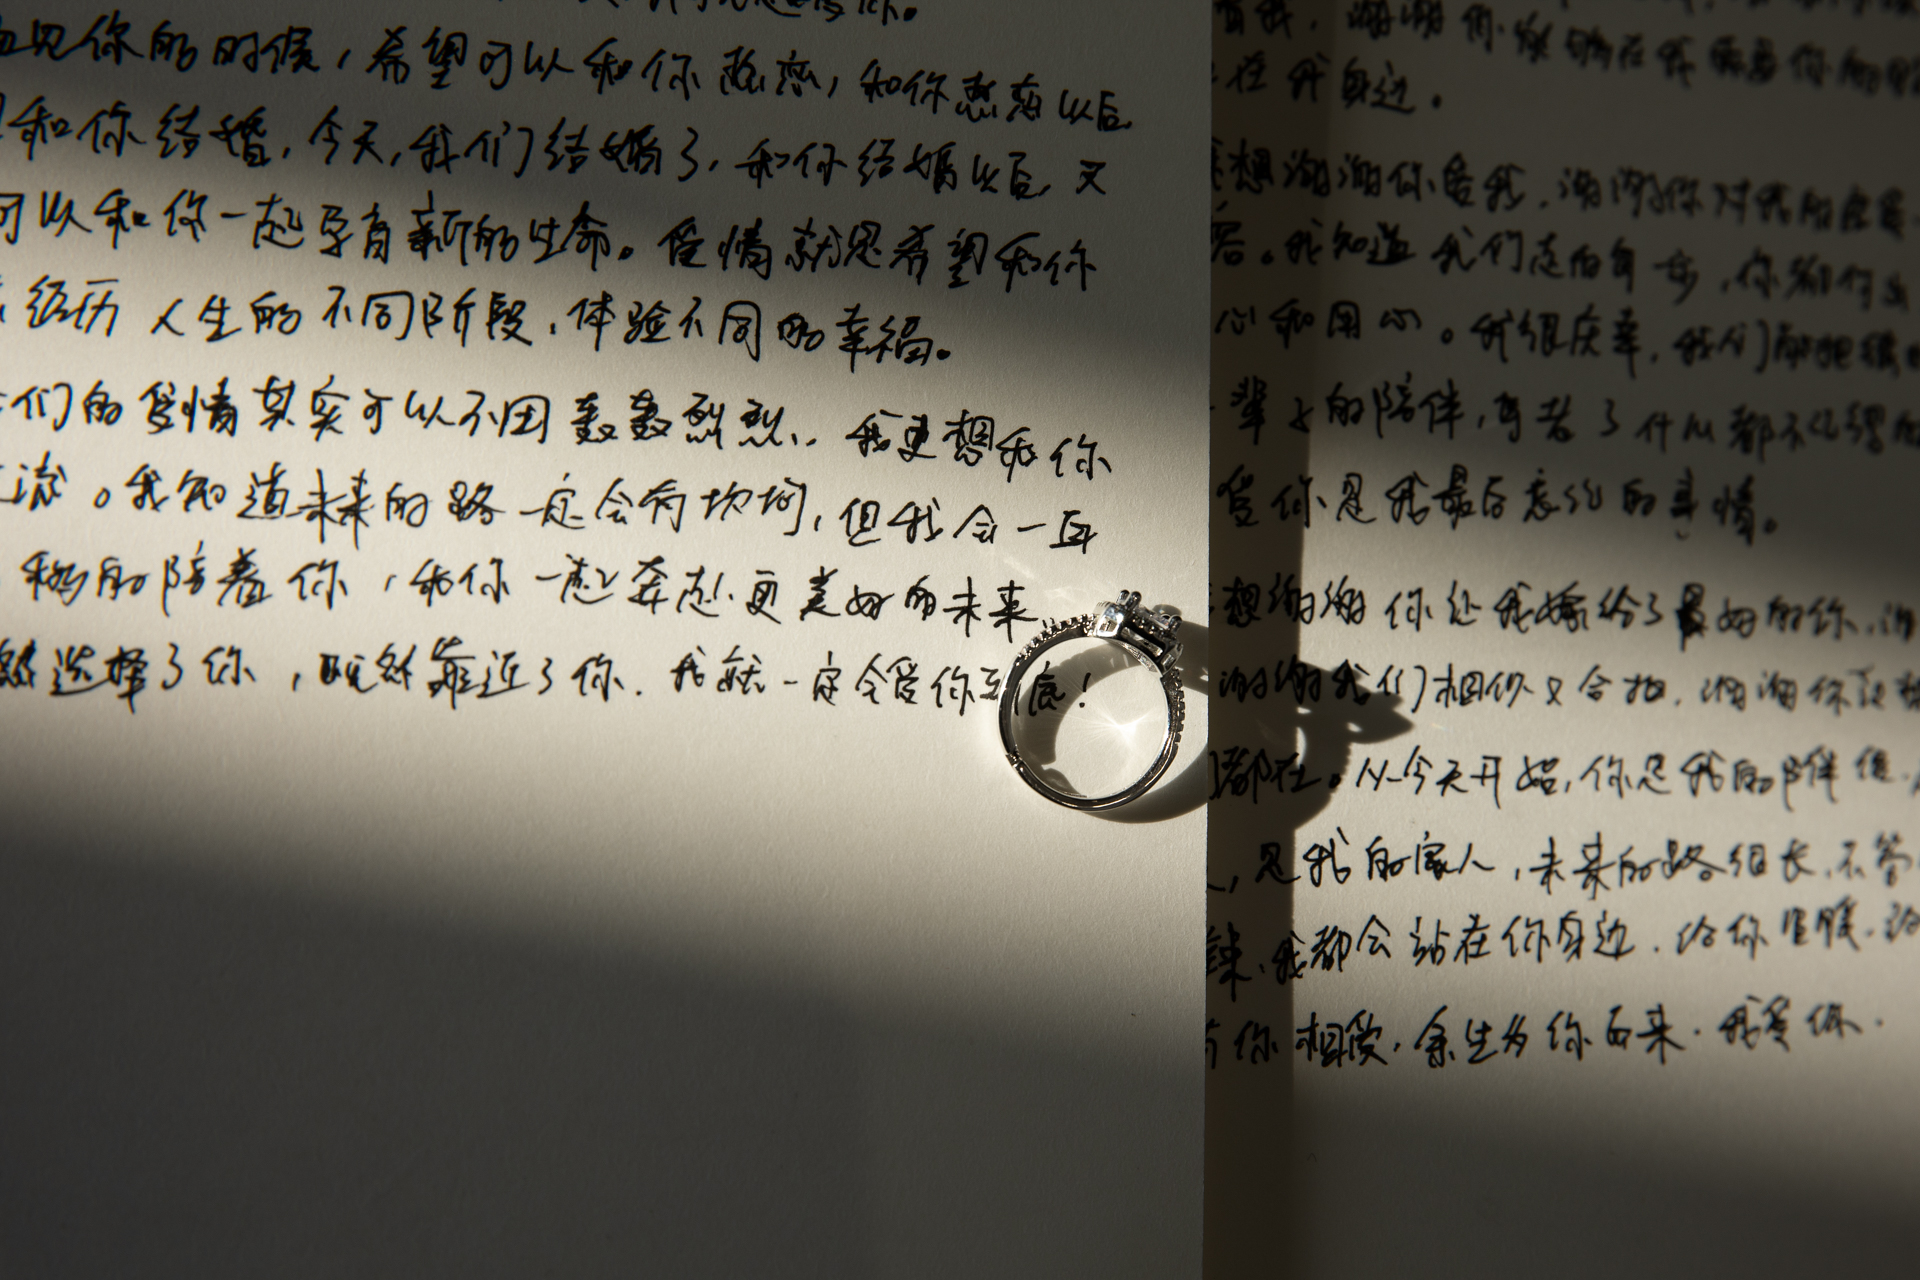 你。
遇见你的时候，希望可以和你热恋，和你热恋以后
和你结婚，今天，我们结婚了，和你结婚以后，又
可以和你一起孕育新的生命。爱情就是希望和你
经历人生的不同阶段，体验不同的幸福。
们的爱情其实可以不用轰轰烈烈，我更想和你
流。我知道未来的路一定会有坎坷，但我会一直
的陪着你，和你一起奔赴更美好的未来
选择了你，既然靠近了你，我就一定会爱你到底！
我，谢谢你能够在我需要你的
在我身边。
想谢谢你爱我，谢谢你对我的
容。我知道我们走的每一步，你都付出
心和用心。我很庆幸，我们都把
辈子的陪伴，等老了什么都不记得
爱你是我最后忘记的事情。
想谢谢你让我嫁给了最好的你，谢
谢谢我们相似又合拍，谢谢你
都在。从今天开始，你是我的伴侣，
，是我的家人，未来的路很长，不管
辣，我都会站在你身边，给你温暖，给
你相爱，余生为你而来。我爱你。